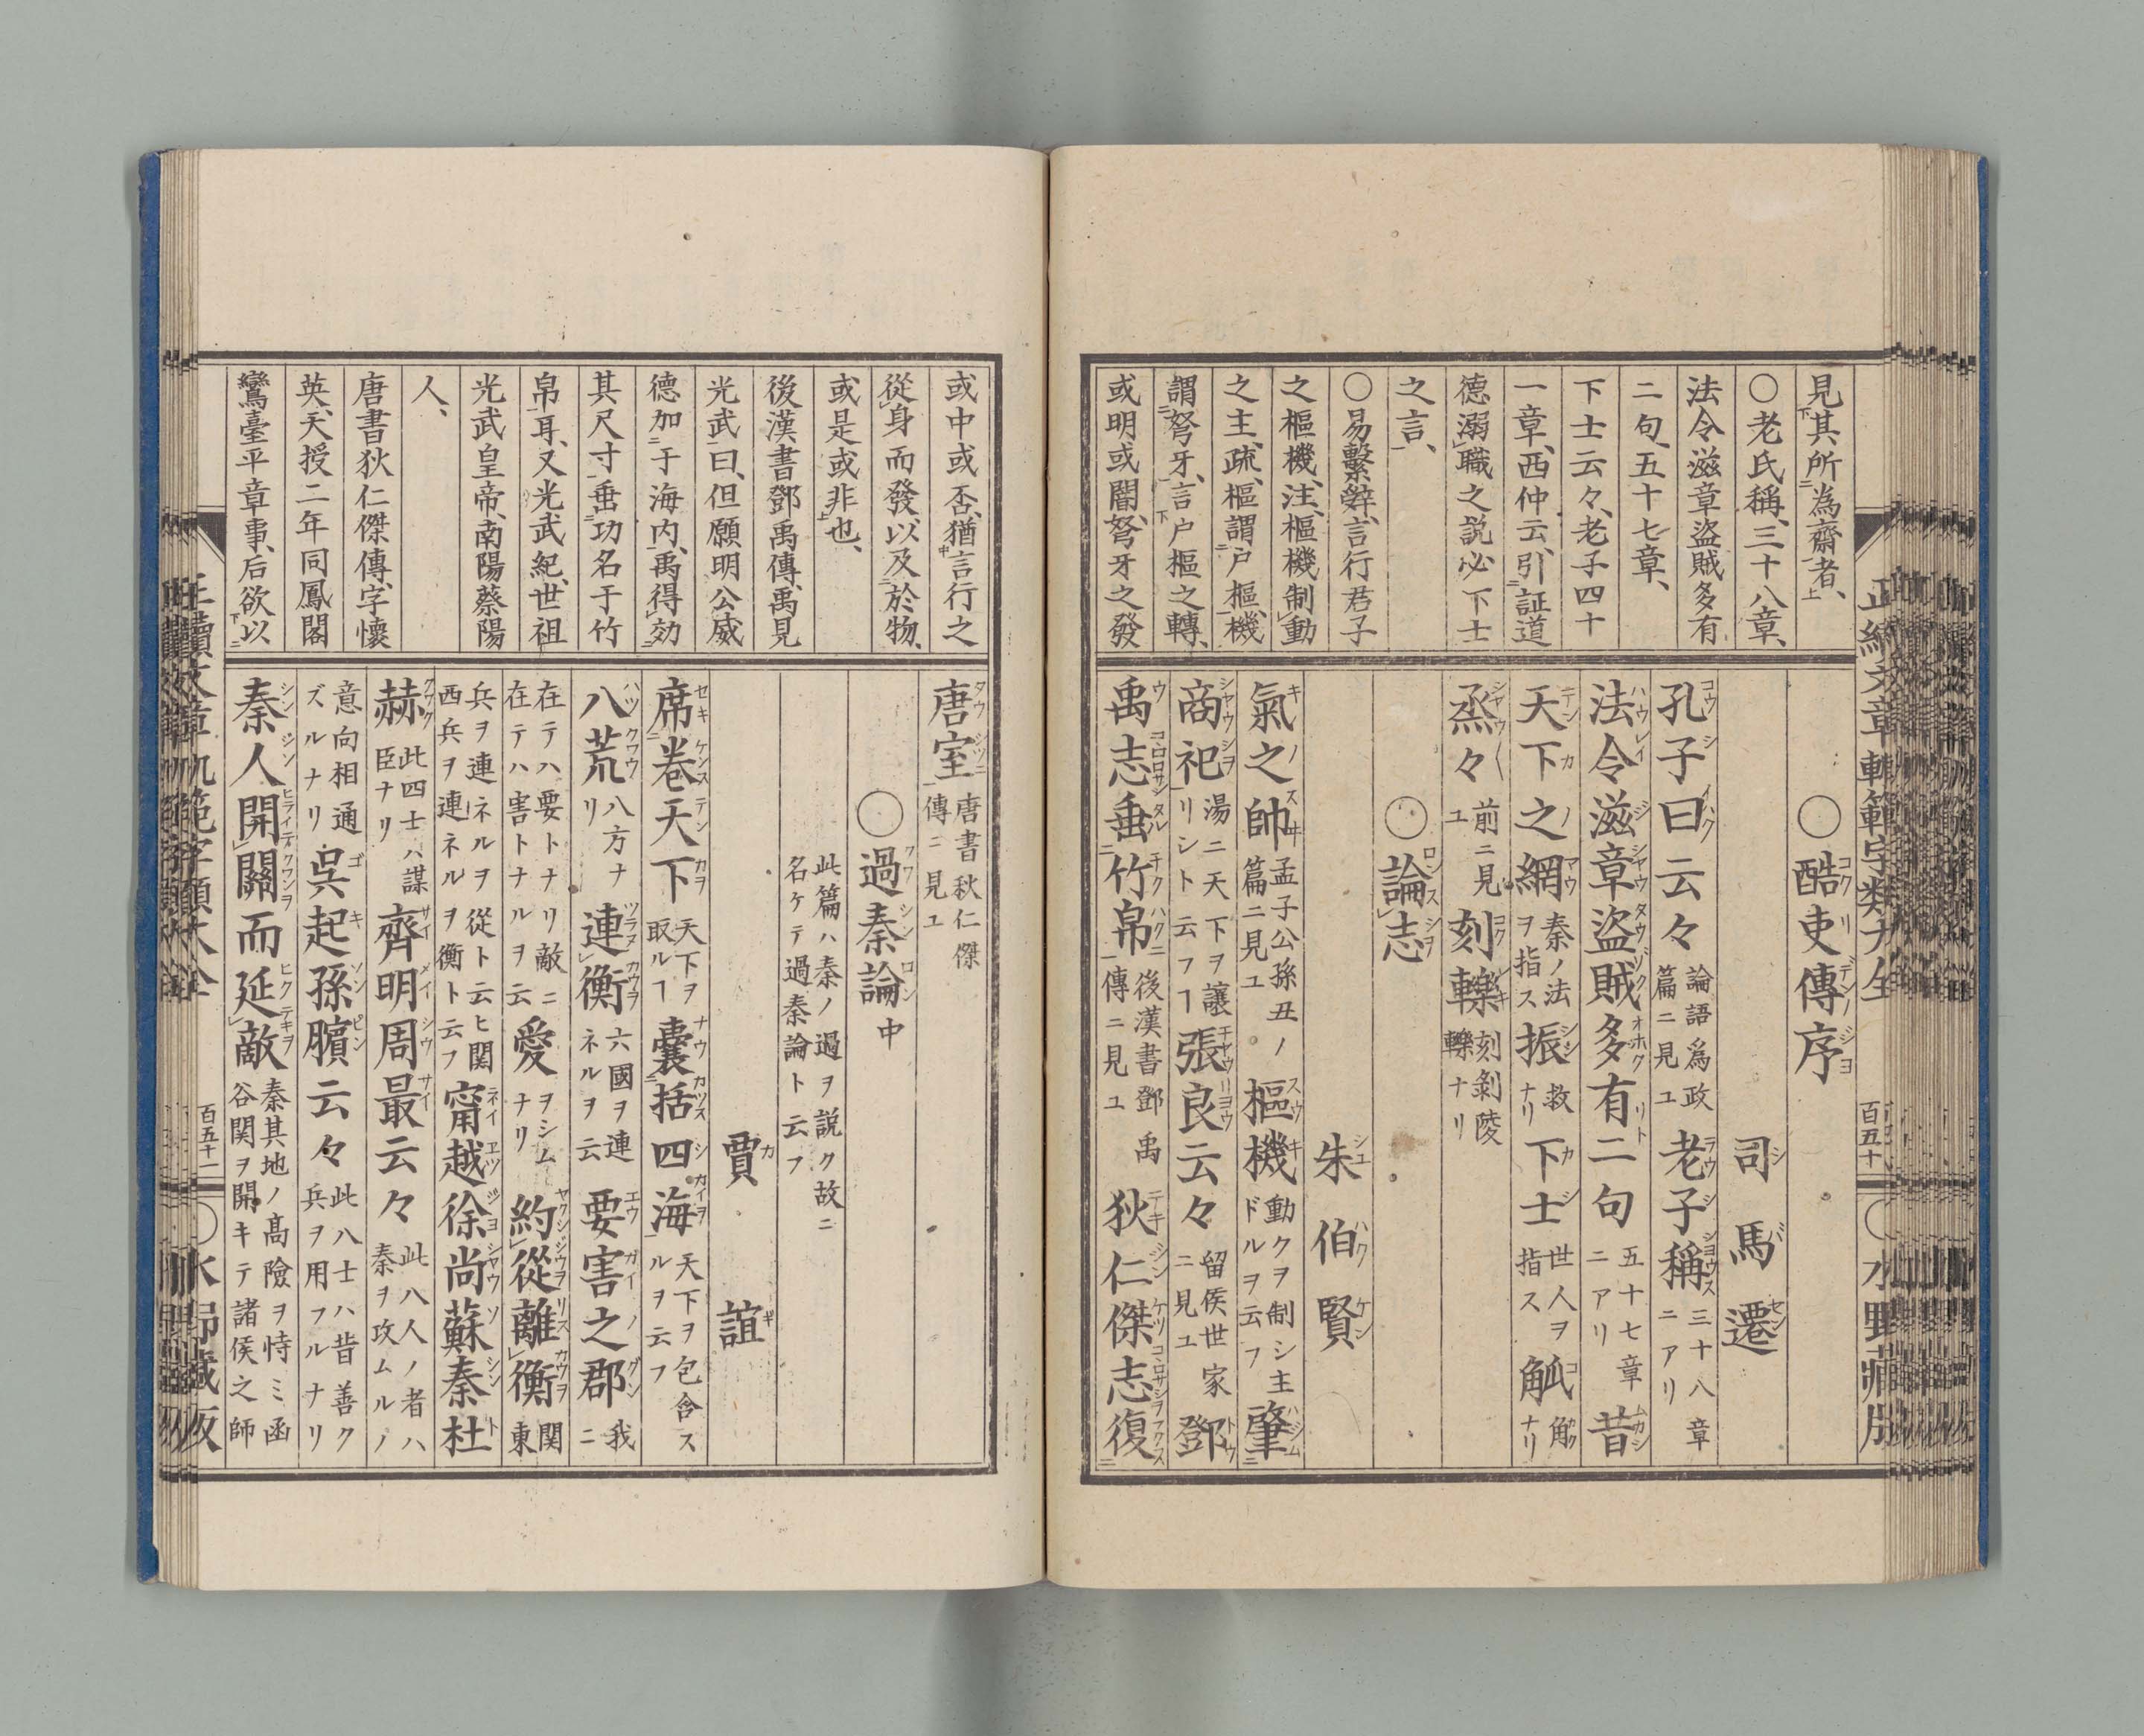 見其所為齋者、
○老氏稱、三十八章、
法令滋章盜賊多有
二句、五十七章、
下士云々、老子四十
一章、西仲云、引証道
德溺職之説必下士
之言、
○易繫辭、言行君子
之樞機、注、樞機制動
之主、疏、樞謂戸樞、機
謂弩牙、言戸樞之轉、
或明或闇、弩牙之發
○酷吏傳序
司馬遷
孔子曰云々論語爲政篇ニ見ユ老子稱三十八章ニアリ
法令滋章盜賊多有二句五十七章ニアリ昔
天下之網秦ノ法ヲ指ス振救ナリ下士世人ヲ指ス觚角ナリ
烝々前ニ見ユ刻轢刻剝陵轢ナリ
○論志
朱伯賢
氣之帥孟子公孫丑ノ篇ニ見ユ樞機動クヲ制シ主ドルヲ云フ肇
商祀湯ニ天下ヲ讓リシト云フヿ張良云々留侯世家ニ見ユ鄧
禹志垂竹帛後漢書鄧禹傳ニ見ユ狄仁傑志復
百五十
或中或否、猶言行之
從身而發以及於物、
或是或非也、
後漢書鄧禹傳、禹見
光武曰、但願明公威
德加于海内、禹得効
其尺寸垂功名于竹
帛耳、又光武紀、世祖
光武皇帝、南陽蔡陽
人、
唐書狄仁傑傳、字懷
英、天授二年同鳳閣
鸞臺平章事、后欲以
唐室唐書秋仁傑傳ニ見ユ
○過秦論中
此篇ハ秦ノ過ヲ説ク故ニ名ケテ過秦論ト云フ
賈誼
席卷天下天下ヲ取ルヿ囊括四海天下ヲ包含スルヲ云フ
八荒八方ナリ連衡六國ヲ連ネルヲ云要害之郡我ニ
在テハ要トナリ敵ニ在テハ害トナルヲ云愛ヲシムナリ約從離衡関東
兵ヲ連ネルヲ從ト云ヒ関西兵ヲ連ネルヲ衡ト云フ甯越徐尚蘇秦杜
赫此四士ハ謀臣ナリ齊明周最云々此八人ノ者ハ秦ヲ攻ムルノ
意向相通ズルナリ呉起孫臏云々此八士ハ昔善ク兵ヲ用フルナリ
秦人開關而延敵秦其地ノ高險ヲ恃ミ函谷関ヲ開キテ諸侯之師
百五十一